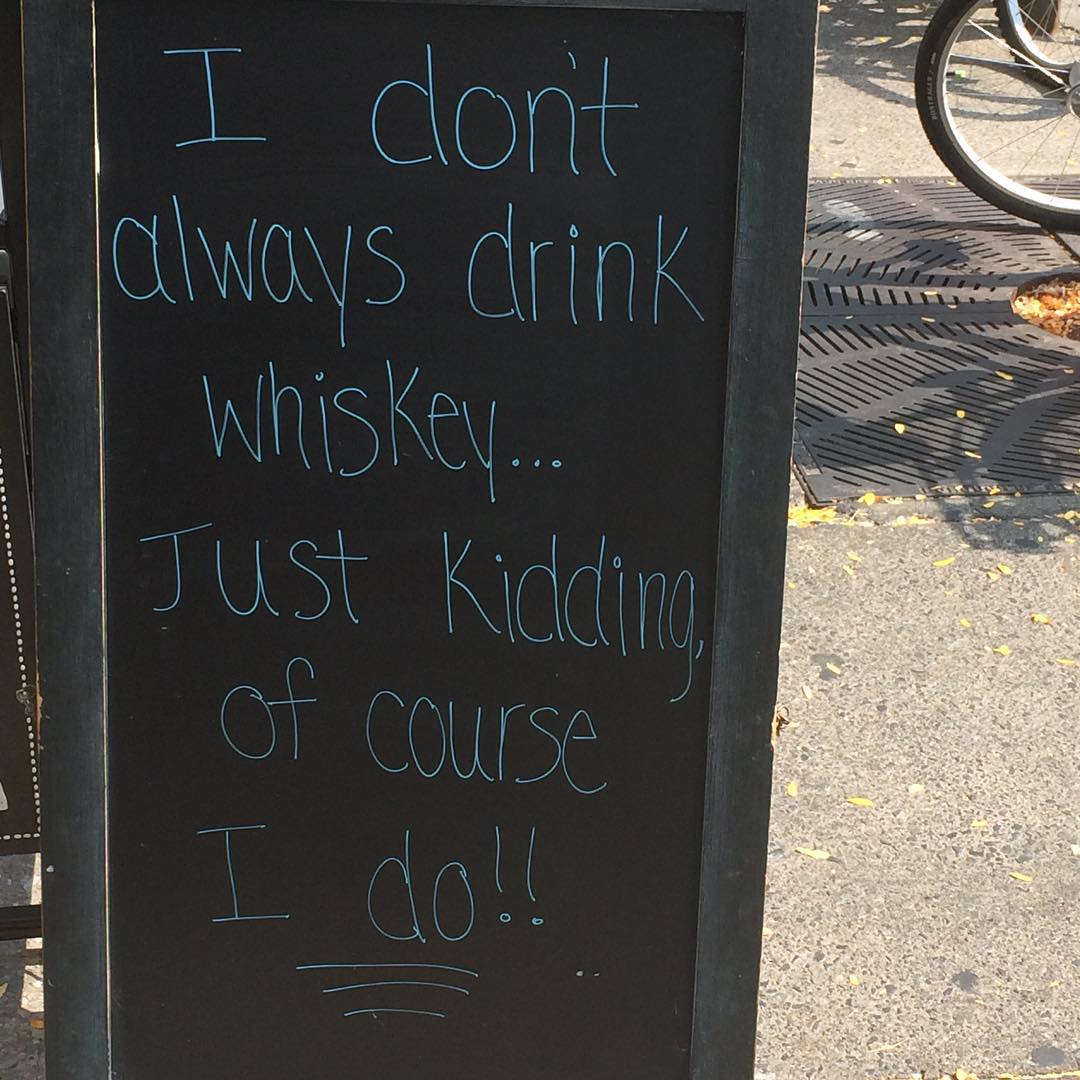 I don't
always drink
whiskey...
Just kidding,
of course
I do!!